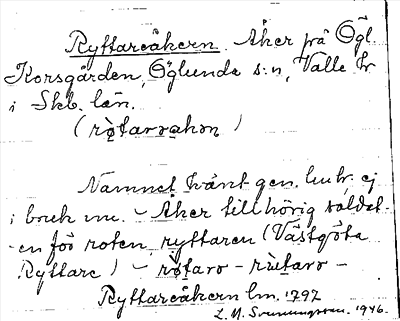 Ryttareåkern. Åker på Ögl.
Korsgården, Öglunda s:n, Valle hr
i Skb. län.
(rø̣tarøakɷn)
Namnet känt gen. hmbr, ej
i bruk nu. – Åker tillhörig soldat-
en för roten, ryttaren (Västgöta
Ryttare) – rø̣tarø – rùtarø –
Ryttareåkern lm. 1797
L. M. Svenungsson. 1946.